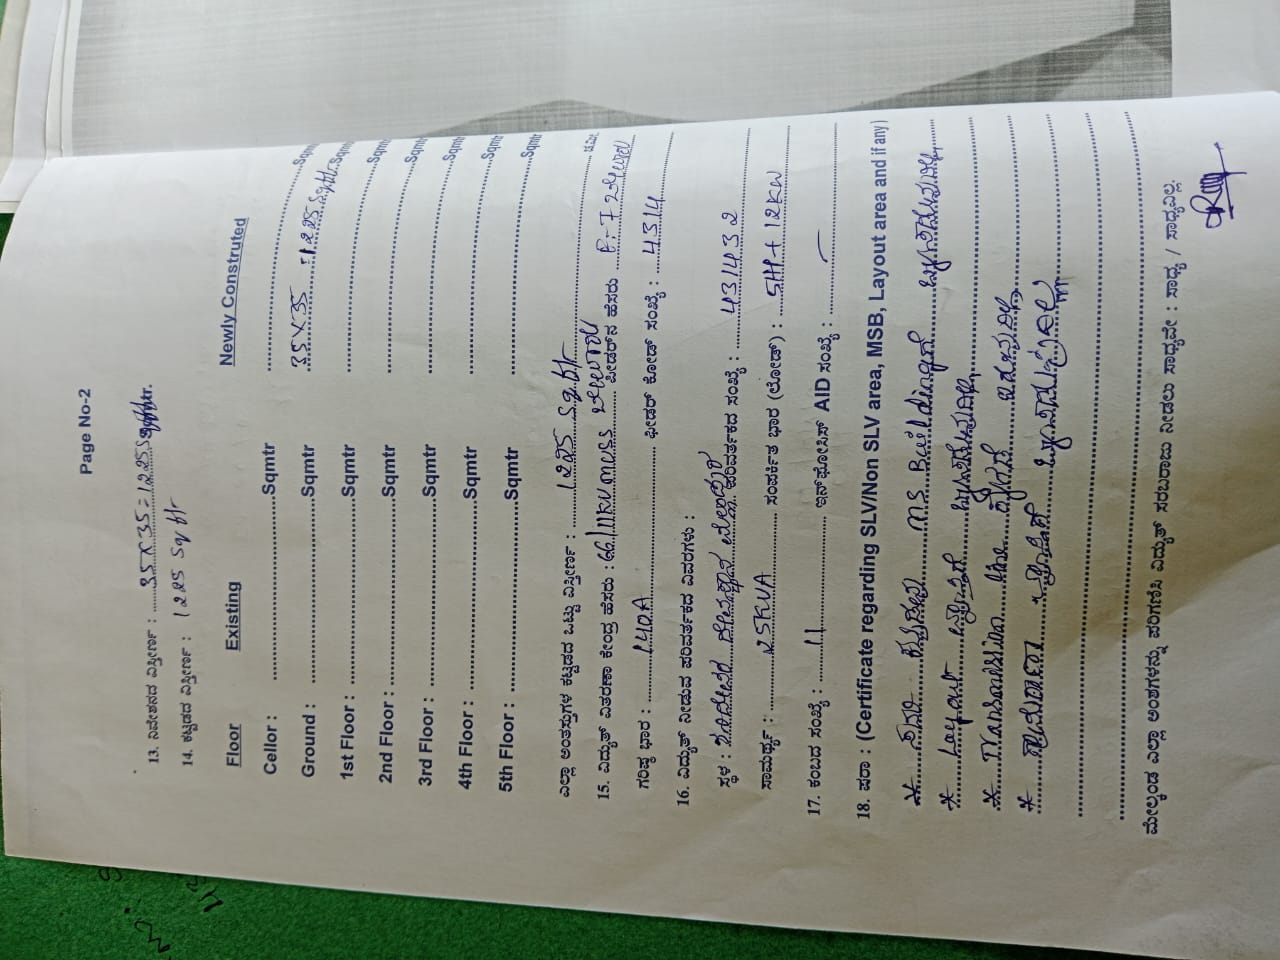 Page No-2
13. ನಿವೇಶನದ ವಿಸ್ತೀರ್ಣ : 35 X 35 = 1225
14. ಕಟ್ಟಡದ ವಿಸ್ತೀರ್ಣ : 1225 Sq ft
Floor Existing Newly Construted
Cellor : ........Sqmtr ........Sqmtr
Ground : ........Sqmtr 35X35 = 1225 Sq.ft.Sqmtr
1st Floor : ........Sqmtr ........Sqmtr
2nd Floor : ........Sqmtr ........Sqmtr
3rd Floor : ........Sqmtr ........Sqmtr
4th Floor : ........Sqmtr ........Sqmtr
5th Floor : ........Sqmtr ........Sqmtr
ಎಲ್ಲಾ ಅಂತಸ್ತುಗಳ ಕಟ್ಟಡದ ಒಟ್ಟು ವಿಸ್ತೀರ್ಣ : 1225 Sq.ft ಚ.ಮೀ.
15. ವಿದ್ಯುತ್ ವಿತರಣಾ ಕೇಂದ್ರ ಹೆಸರು : 66/11KV MUSS ಬೇಲೂರು ಫೀಡರ್‌ನ ಹೆಸರು F-7 ಬೇಲೂರು
ಗರಿಷ್ಠ ಭಾರ : 140A ಫೀಡರ್ ಕೋಡ್ ಸಂಖ್ಯೆ : 4314
16. ವಿದ್ಯುತ್ ನೀಡುವ ಪರಿವರ್ತಕದ ವಿವರಗಳು :
ಸ್ಥಳ : ದೇವಸ್ಥಾನ ಪರಿವರ್ತಕದ ಸಂಖ್ಯೆ : 431432
ಸಾಮರ್ಥ್ಯ : 25KVA ಸಂಪರ್ಕಿತ ಭಾರ (ಲೋಡ್) : 5HP+12KW
17. ಕಂಬದ ಸಂಖ್ಯೆ : 11 ಇನ್‌ಫೋಸಿಸ್ AID ಸಂಖ್ಯೆ : —
18. ಷರಾ : (Certificate regarding SLV/Non SLV area, MSB, Layout area and if any)
* ಸದರಿ ಕಟ್ಟಡವು MS Buildingಗೆ
* Layout ವ್ಯಾಪ್ತಿಗೆ
* Transmission line
* ವ್ಯಾಪ್ತಿಗೆ
ಮೇಲ್ಕಂಡ ಎಲ್ಲಾ ಅಂಶಗಳನ್ನು ಪರಿಗಣಿಸಿ ವಿದ್ಯುತ್ ಸರಬರಾಜು ನೀಡಲು ಸಾಧ್ಯವೇ : ಸಾಧ್ಯ / ಸಾಧ್ಯವಿಲ್ಲ.